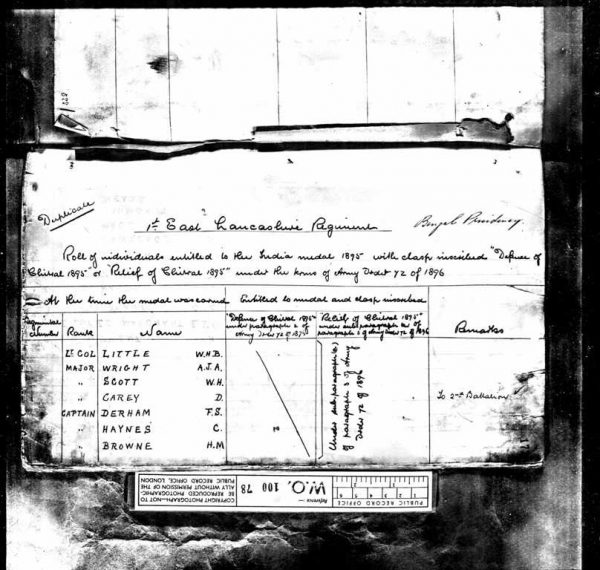 228
Duplicate
1st East Lancashire Regiment
Bengal Presidency
Roll of individuals entitled to the India medal 1895 with clasp inscribed "Defence of
Chitral 1895" or "Relief of Chitral 1895" under the terms of Army Order 72 of 1896
At the time the medal was earned
Entitled to medal and clasp inscribed
Regimental Number
Rank
Name
"Defence of Chitral 1895" under paragraph 2 of Army Order 72 of 1895
"Relief of Chitral 1895" under sub paragraph (a) of paragraph 3 of Army Order 72 of 1896
Remarks
Lt COL LITTLE W.H.B.
MAJOR WRIGHT A.J.A.
" SCOTT W.H.
" CAREY D. To 2nd Battalion
CAPTAIN DERHAM F.S.
" HAYNES C.
" BROWNE H.M
Under sub paragraph (a)
of paragraph 3 of Army
Order 72 of 1896
PUBLIC RECORD OFFICE
1 2 3 4 5 6
1 2
Reference:-
W.O. 100 78
COPYRIGHT PHOTOGRAPH—NOT TO
BE REPRODUCED PHOTOGRAPHIC-
ALLY WITHOUT PERMISSION OF THE
PUBLIC RECORD OFFICE, LONDON